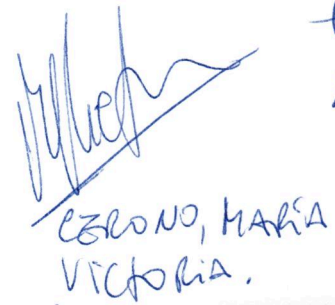 CERONO, MARÍA
VICTORIA.